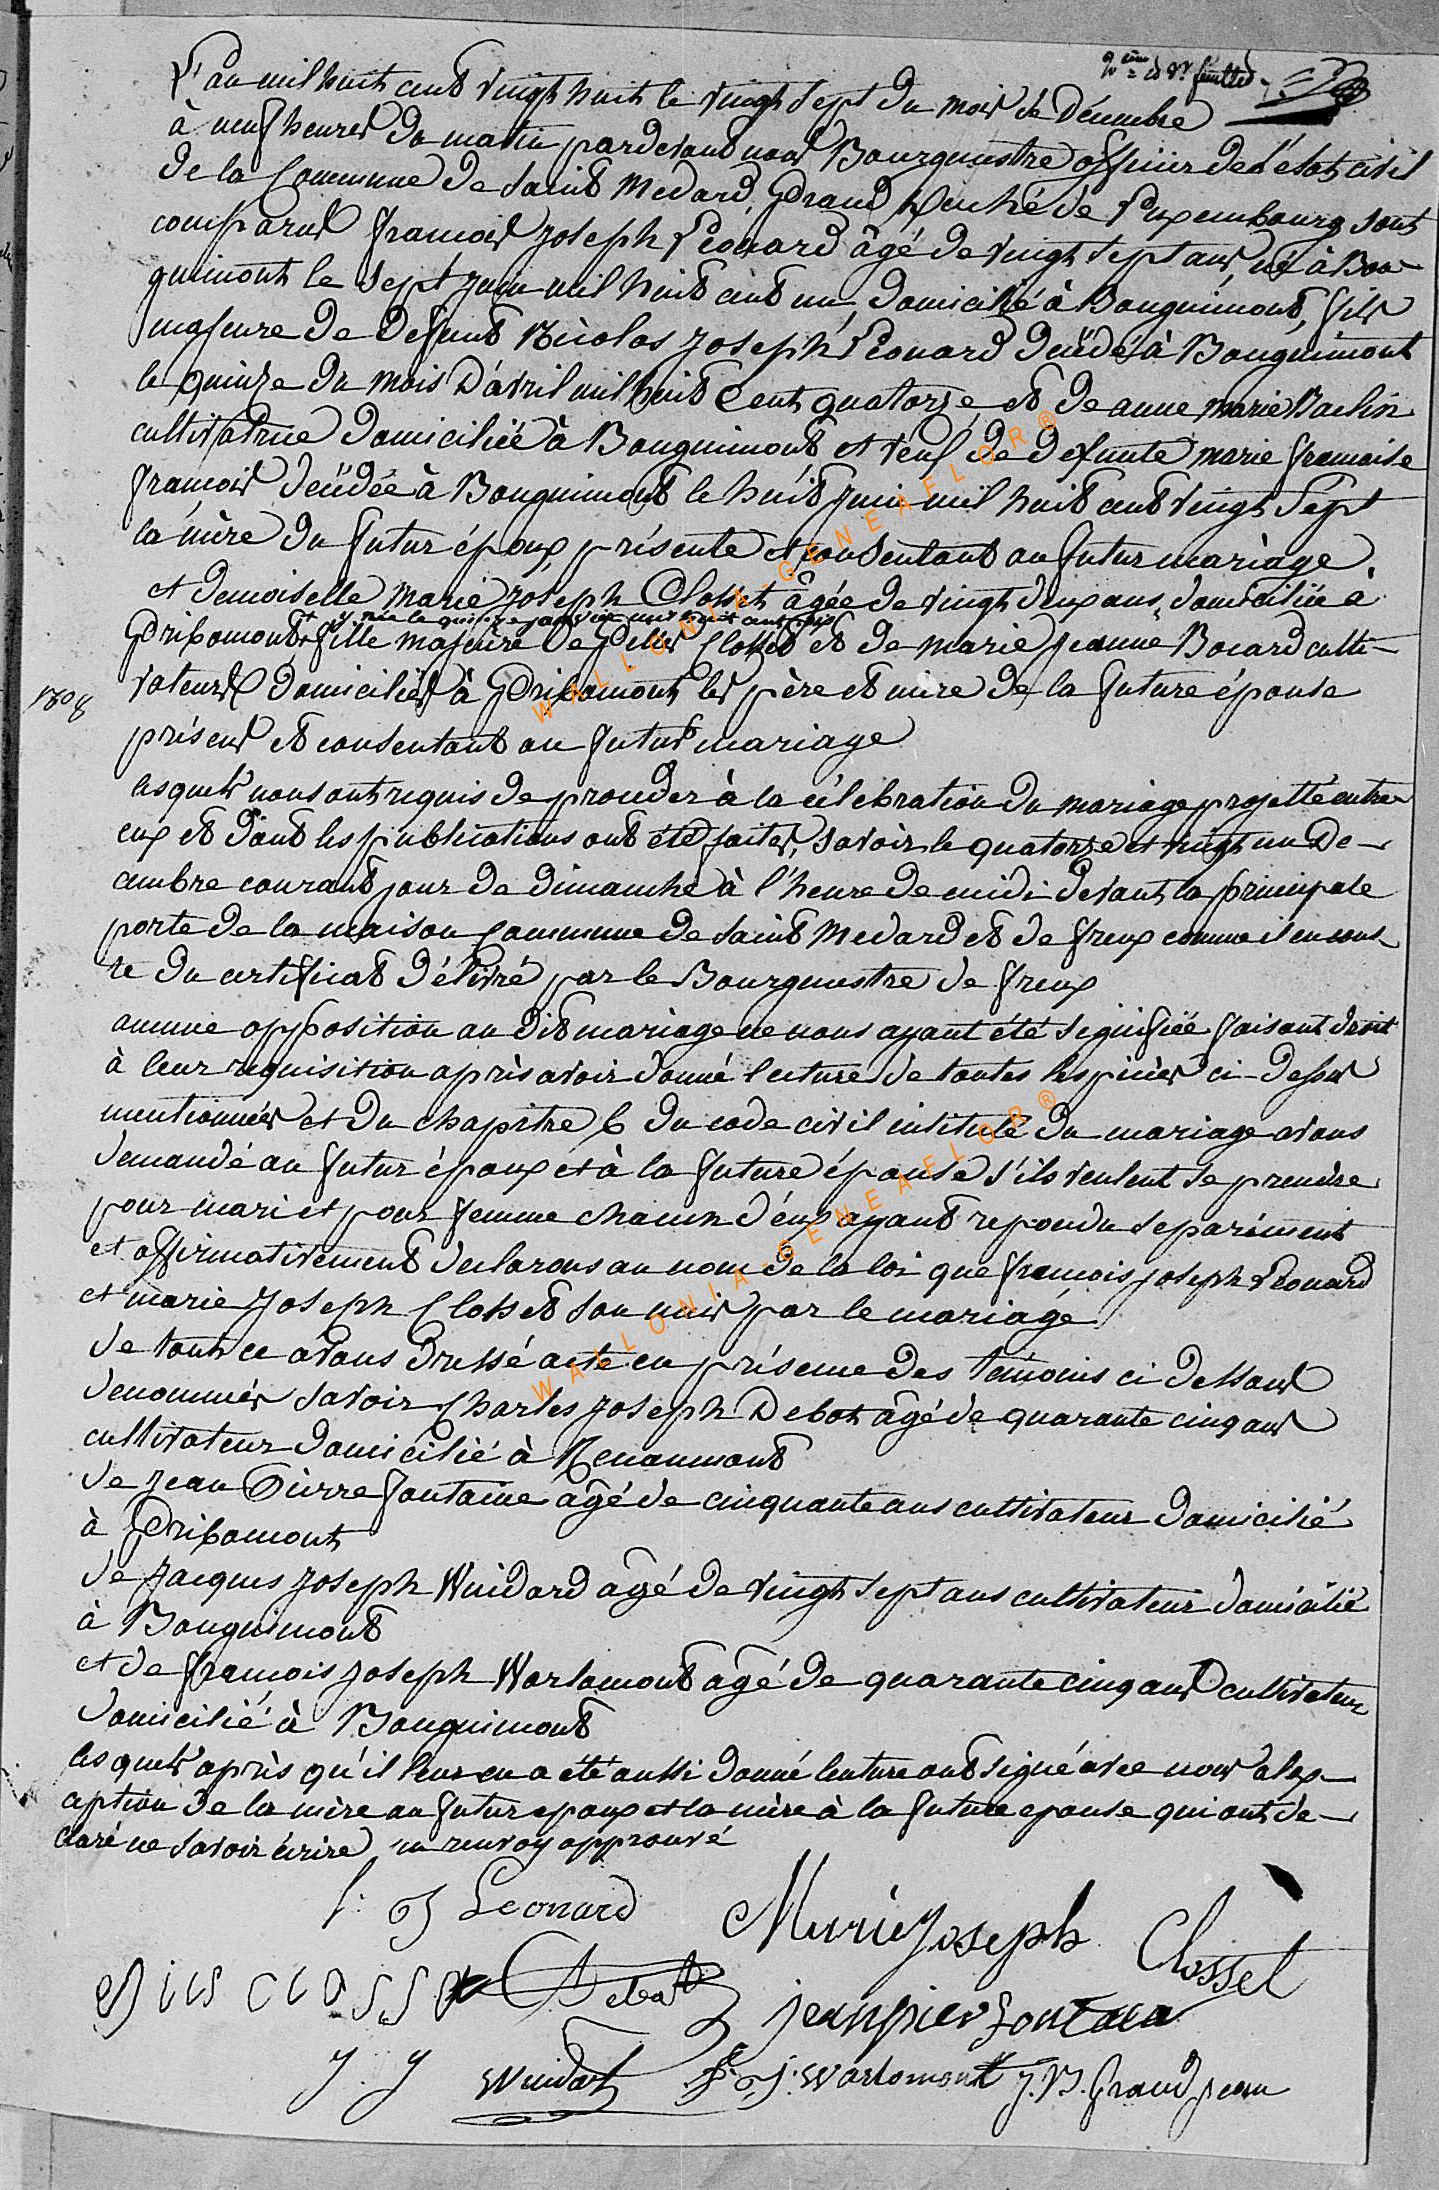 2em et dr feuillet
L'an mil huit cent vingt huit le vingt sept du mois de Décembre
à neuf heures du matin pardevant nous Bourguestre officier de l'état civil
de la Commune de Saint Medard, Grand Duché de Luxembourg sont
comparus francois Joseph Léonard âgé de vingt sept ans, né à Bou-
guimont le sept juin mil huit cent un, domicilié à Bouguimont, fils
majeure de Defunt Nicolas Joseph Léonard décédé à Bouguimont
le quinze du mois D'avril mil huit Cent quatorze et de anne marie
cultivatrice domiciliée à Bouguimont et veuf de defunte marie francoise
francois décédée à Bouguimont le huit juin mil huit cent vingt Sept
la mère du futur époux, présente et consentant au futur mariage.
et demoiselle marie joseph Closset âgée de vingt deux ans, domiciliée à
y née le mil huit cent six
Gribomont + fille majeure de Gilles Closset et de marie jeanne Bocard culti-
vateurs domiciliés à Gribomont les père et mère de la future épouse
1808
présens et consentant au futur mariage
lesquels nous ont requis de proceder à la célébration du mariage projetté entre
eux et dont les publications ont été faites, savoir le quatorze et vingt un De-
cembre courant jour de dimanche à l'heure de midi devant la principale
porte de la maison Commune de Saint Medard et de freux comme il en cons-
te du certificat délivré par le Bourguestre de freux
aucune opposition au dit mariage ne nous ayant été signifiée faisant droit
à leur requisition après avoir donné lecture de toutes les pièces ci-dessus
mentionnées et du chapitre 6 du code civil intitulé du mariage avons
demandé au futur époux et à la future épouse s'ils veulent se prendre
pour mari et pour femme chacun d'eux ayant repondu separément
et affirmativement declarons au nom de la loi que francois joseph Léonard
et marie Joseph Closset son unis par le mariage
de tout ce avons dressé acte en présence des témoins ci dessous
denommés savoir Charles Joseph Debot âgé de quarante cinq ans
cultivateur domicilié à Renaumont
de jean Pierre fontaine âgé de cinquante ans cultivateur domicilié
à Gribomont
de Jacques Joseph Wuidard âgé de vingt sept ans cultivateur domicilié
à Bouguimont
et de francois joseph Warlomont âgé de quarante cinq ans cultivateur
domicilié à Bouguimont
lesquels après qu'il leur en a été aussi donné lecture ont signé avec nous à l'ex-
ception de la mère au futur epoux et la mère à la future epouse qui ont dé-
claré ne savoir écrire, un renvoy approuvé
f: J Leonard
Marie Joseph Closset
Debot
jean pier fontaen
J. J Wuidart
f: J: Warlomont
J. B. Grandjean
WALLONIA-GENEAFLOR®
WALLONIA-GENEAFLOR®